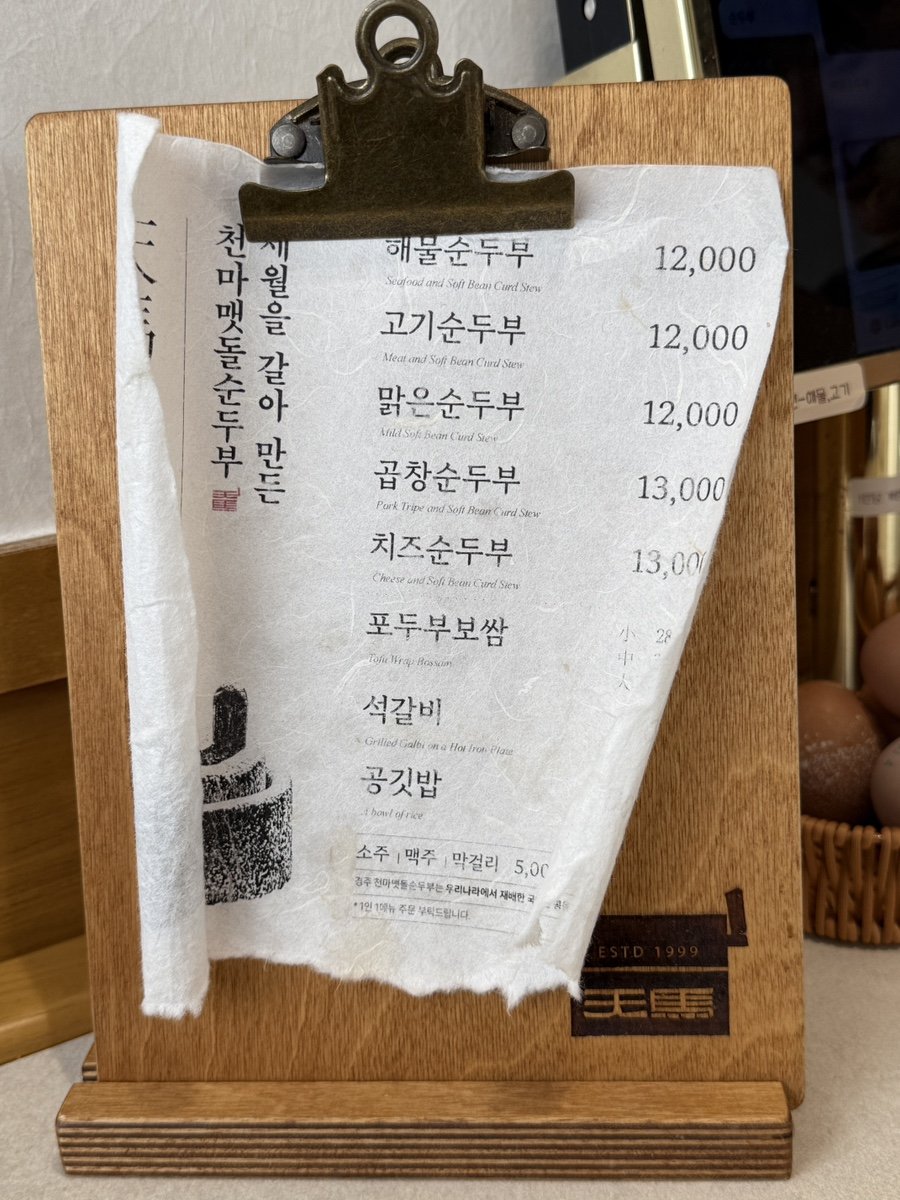 세월을 갈아 만든
천마맷돌순두부
해물순두부 12,000
Seafood and Soft Bean Curd Stew
고기순두부 12,000
Meat and Soft Bean Curd Stew
맑은순두부 12,000
Mild Soft Bean Curd Stew
곱창순두부 13,000
Pork Tripe and Soft Bean Curd Stew
치즈순두부 13,000
Cheese and Soft Bean Curd Stew
포두부보쌈 小 28
Tofu Wrap Bossam 中
大
석갈비
Grilled Galbi on a Hot Iron Plate
공깃밥
A bowl of rice
소주 | 맥주 | 막걸리 5,00
경주 천마맷돌순두부는 우리나라에서 재배한 국
* 1인 1메뉴 주문 부탁드립니다.
ESTD 1999
天馬